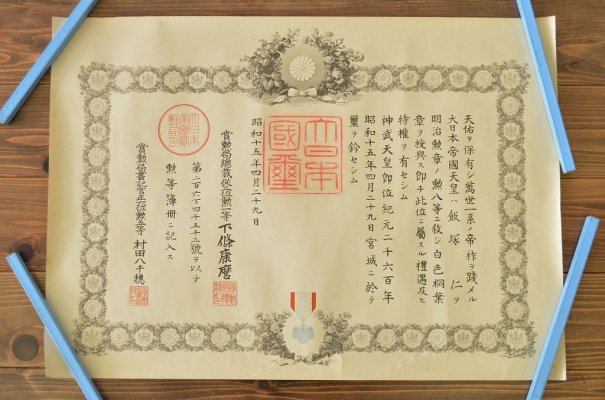 天佑ヲ保有シ萬世一系ノ帝祚ヲ踐メル
大日本帝國天皇ハ飯塚仁ヲ
明治勲章ノ勲八等ニ敘シ白色桐葉
章ヲ授與ス即チ此位ニ屬スル禮遇及ヒ
特權ヲ有セシム
神武天皇即位紀元二千六百年
昭和十五年四月二十九日宮城ニ於テ
璽ヲ鈐セシム
大日本
國璽
昭和十五年四月二十九日
賞勲局總裁從三位勲二等下條康麿
第二百六万四千五十二號ヲ以テ
勲等簿冊ニ記入ス
賞勲局書記官正六位勲五等村田八千穂